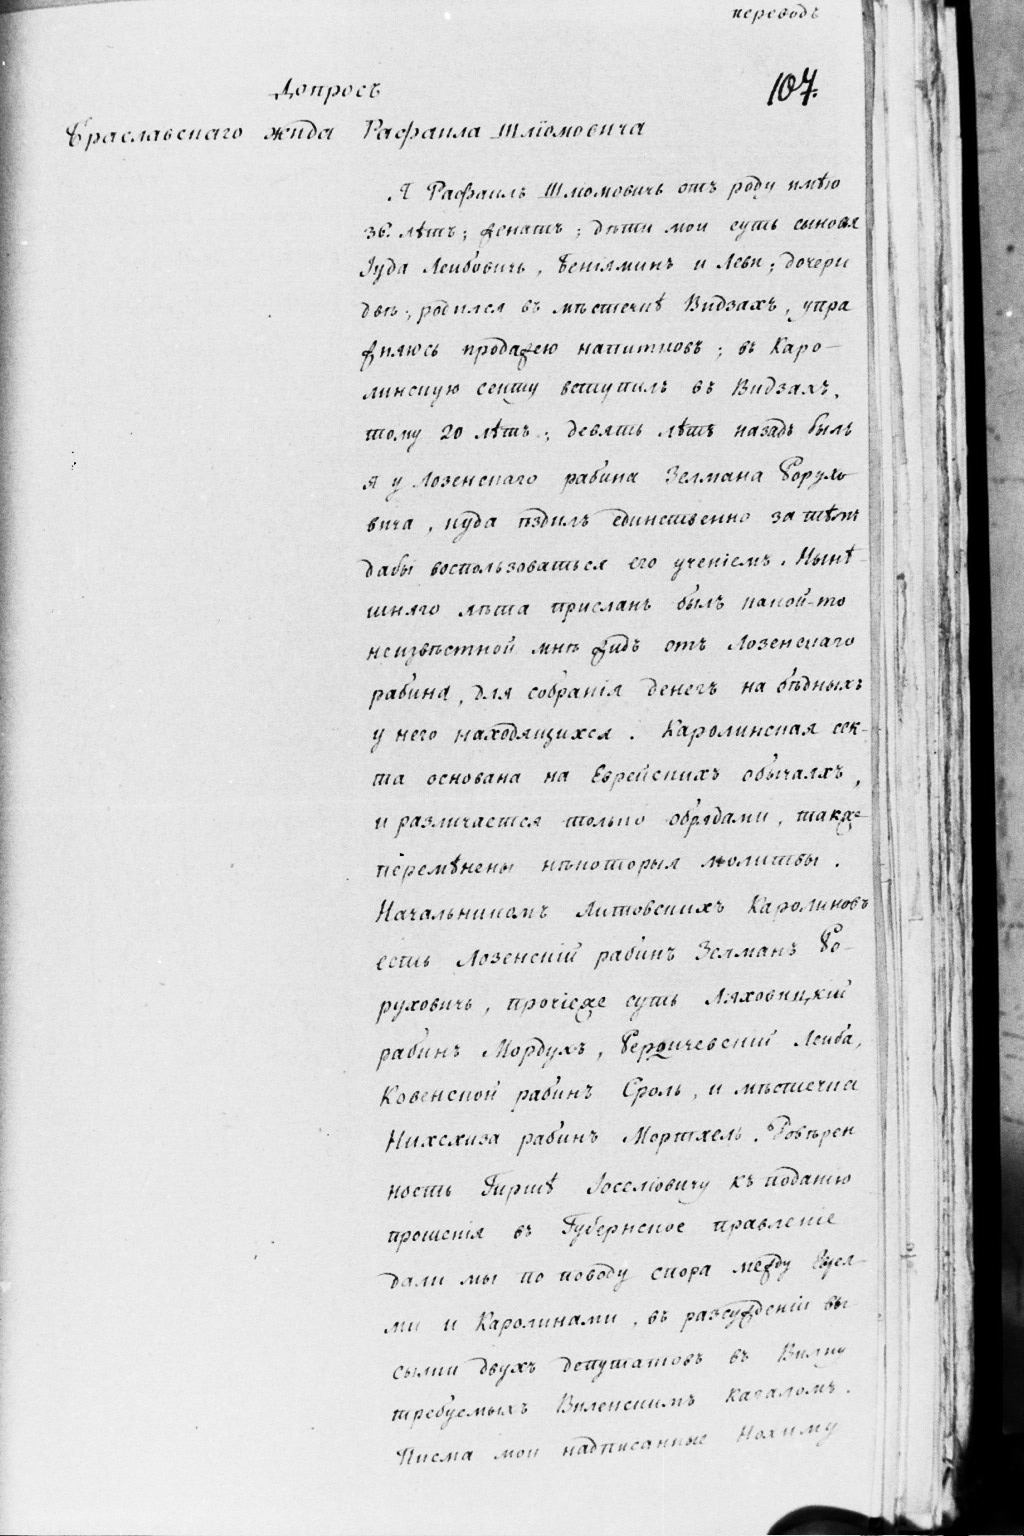 переводъ
107.
Допросъ
Браславскаго жида Рафаила Шліомовича
Я Рафаилъ Шмомовичь отъ роду имѣю
36. лѣтъ; женатъ; дѣти мои суть сыновья
Іуда Леибовичь, Беніяминъ и Леви; дочери
двѣ; родился въ мѣстечкѣ Видзахъ, упра
жняюсь продажею напитковъ; въ Каро-
линскую секту вступилъ въ Видзахъ,
тому 20 лѣтъ; девять лѣтъ назадъ былъ
я у Лозенскаго рабина Зелмана Борухо
вича, куда ѣздилъ единственно за тѣмъ
дабы воспользоваться его ученіемъ. Нынѣ-
шняго лѣта присланъ былъ какой-то
неизвѣстной мнѣ жидъ отъ Лозенскаго
рабина, для собранія денегъ на бѣдныхъ
у него находящихся. Каролинская сек-
та основана на Еврейскихъ обычаяхъ,
и различается только обрядами, также
перемѣнены нѣкоторыя молитвы.
Начальникомъ Литовскихъ Каролиновъ
есть Лозенскій рабинъ Зелманъ Бо-
руховичь, прочіеже суть Ляховицкій
рабинъ Мордухъ, Бердичевскій Леиба,
Ковенской рабинъ Сроль, и мѣстечка
Нихсхиза рабинъ Мортхель. Довѣрен
ность Гиршѣ Іоселіовичу къ поданію
прошенія въ Губернское правленіе
дали мы по поводу спора между Евреа-
ми и Каролинами, въ разсужденіи вы
сылки двухъ депутатовъ въ Вилну
требуемыхъ Виленскимъ Кагаломъ.
Писма мои надписанные Нохиму